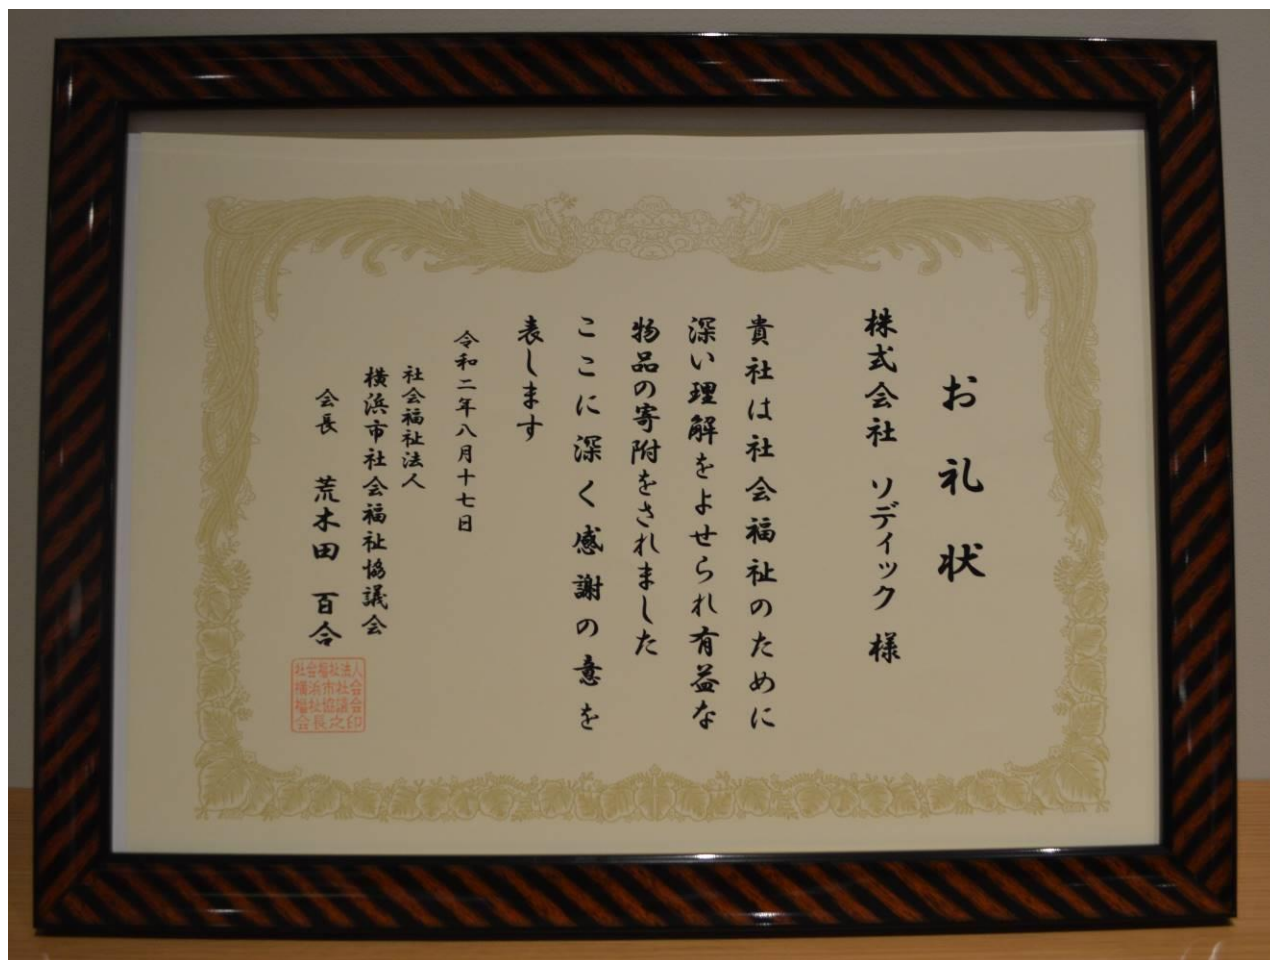 お礼状
株式会社 ソディック 様
貴社は社会福祉のために
深い理解をよせられ有益な
物品の寄附をされました
ここに深く感謝の意を
表します
令和二年八月十七日
社会福祉法人
横浜市社会福祉協議会
会長 荒木田 百合
社会福祉法人
横浜市社会
福祉協議会
会長之印